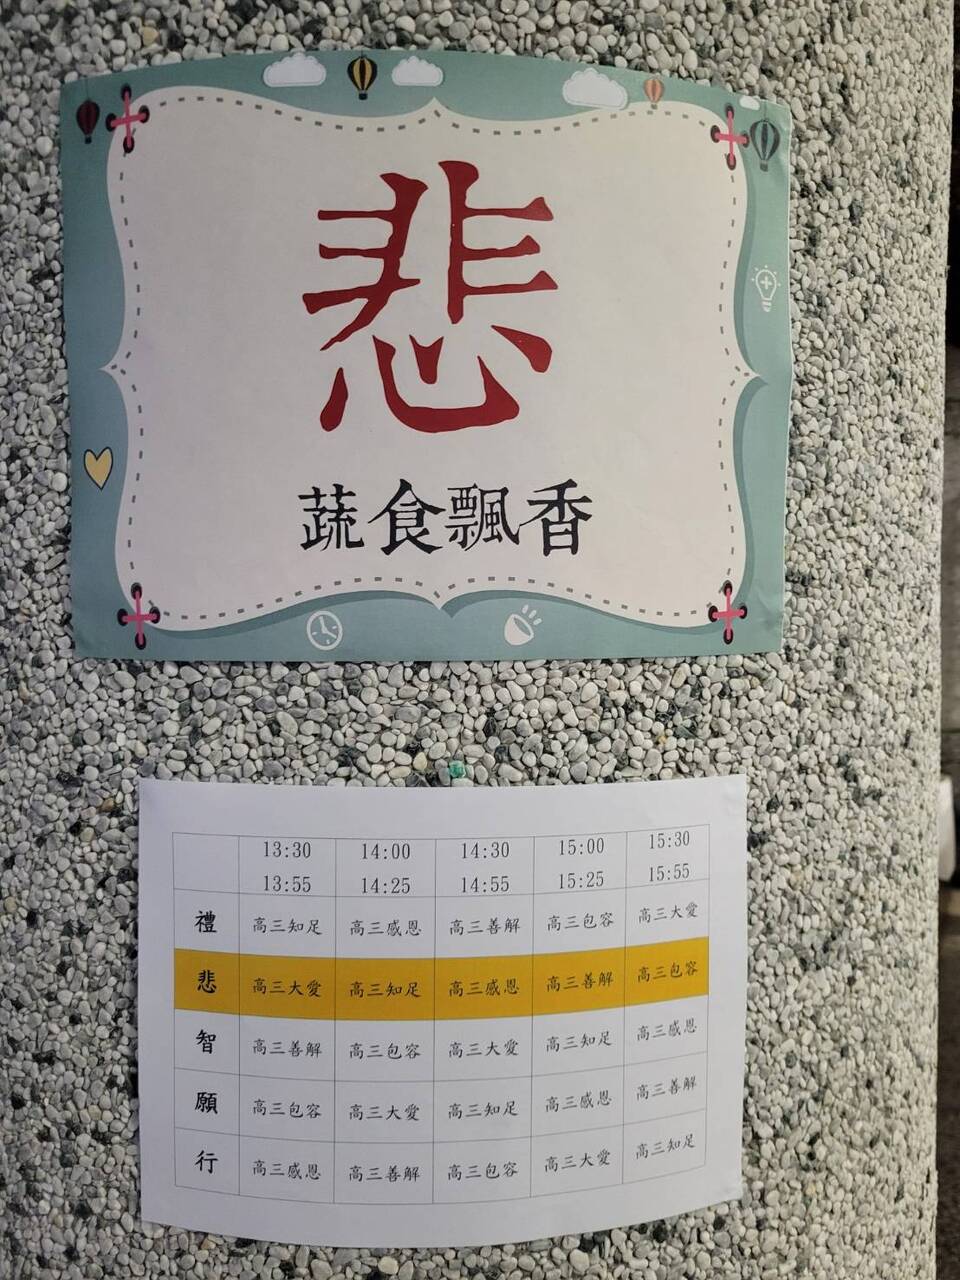 悲
蔬食飄香
13:30 14:00 14:30 15:00 15:30
13:55 14:25 14:55 15:25 15:55
禮 高三知足 高三感恩 高三善解 高三包容 高三大愛
悲 高三大愛 高三知足 高三感恩 高三善解 高三包容
智 高三善解 高三包容 高三大愛 高三知足 高三感恩
願 高三包容 高三大愛 高三知足 高三感恩 高三善解
行 高三感恩 高三善解 高三包容 高三大愛 高三知足